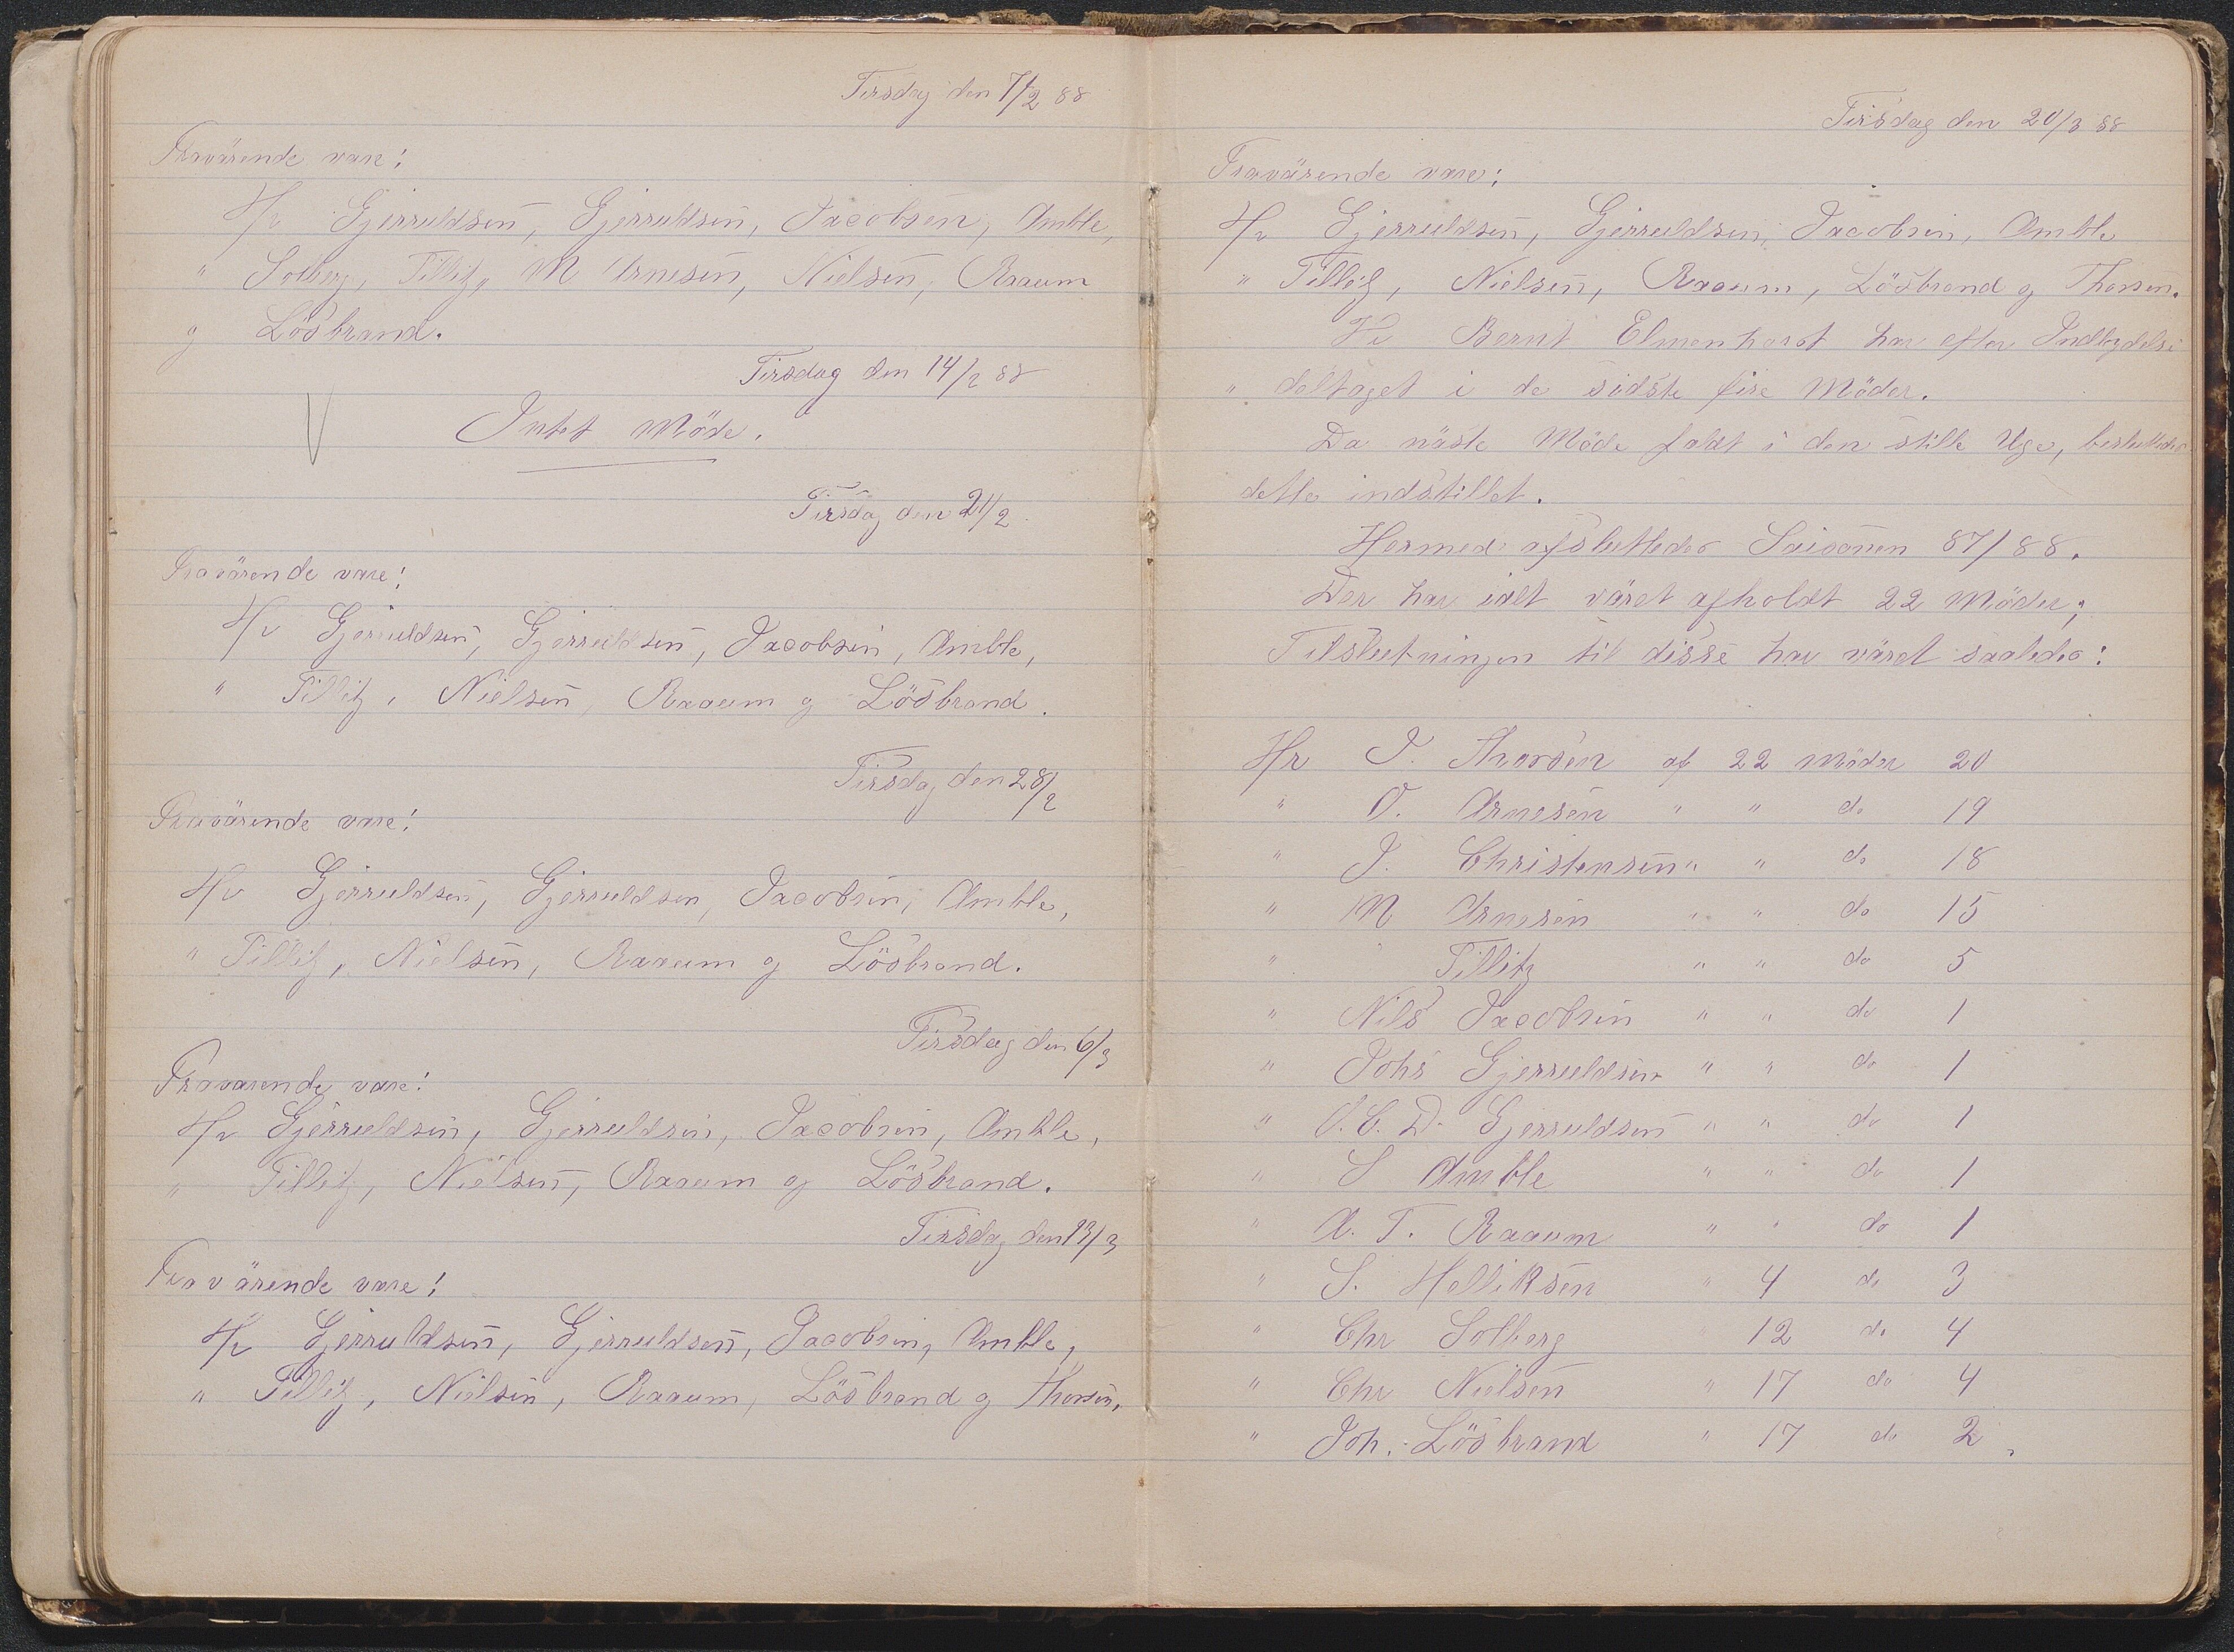 Tirsdag den 7/2 88
Fraværende vare:
Hr Gjerruldsen, Gjerruldsen, Jacobsen, Amble,
" Solberg, Tillitz, M Arnesen, Nielsen, Raaum
og Lösbrand.
Tirsdag den 14/2 88
Intet Möde.
Tirsdag den 21/2
Fravärende vare:
Hr Gjerruldsen, Gjerruldsen, Jacobsen, Amble,
" Tillitz, Nielsen, Raaum og Lösbrand.
Tirsdag den 28/2
Fravärende vare:
Hr Gjerruldsen, Gjerruldsen, Jacobsen, Amble,
" Tillitz, Nielsen, Raaum og Lösbrand.
Tirsdag den 6/3
Fravarende vare:
Hr Gjerruldsen, Gjerruldsen, Jacobsen, Amble,
" Tillitz, Nielsen, Raaum og Lösbrand.
Tirsdag den 13/3
Fravärende vare:
Hr Gjerruldsen, Gjerruldsen, Jacobsen, Amble,
" Tillitz, Nielsen, Raaum, Lösbrand og Thorsen.
Tirsdag den 20/3 88
Fravärende vare:
Hr Gjerruldsen, Gjerruldsen, Jacobsen, Amble
" Tillitz, Nielsen, Raaum, Lösbrand og Thorsen.
Hr Bernt Elmenhorst har efter Indbydelse
" deltaget i de sidste fire Möder.
Da näste Möde faldt i den stille Uge, besluttedes
dette indstillet.
Hermed afsluttedes Saisonen 87/88.
Der har ialt väret afholdt 22 Möder;
Tilslutningen til disse har väret saaledes:
Hr J. Thorsen af 22 Möder 20
" O. Arnesen " " do 19
" J. Christensen " " do 18
" M Arnesen " " do 15
" Tillitz " " do 5
" Nils Jacobsen " " do 1
" Johs Gjerruldsen " " do 1
" O. C. D. Gjerruldsen " " do 1
" S Amble " " do 1
" A. T. Raaum " " do 1
" S. Helliksen " 4 do 3
" Chr Solberg 12 do 4
" Chr Nielsen " 17 do 4
" Joh. Lösbrand " 17 do 2.